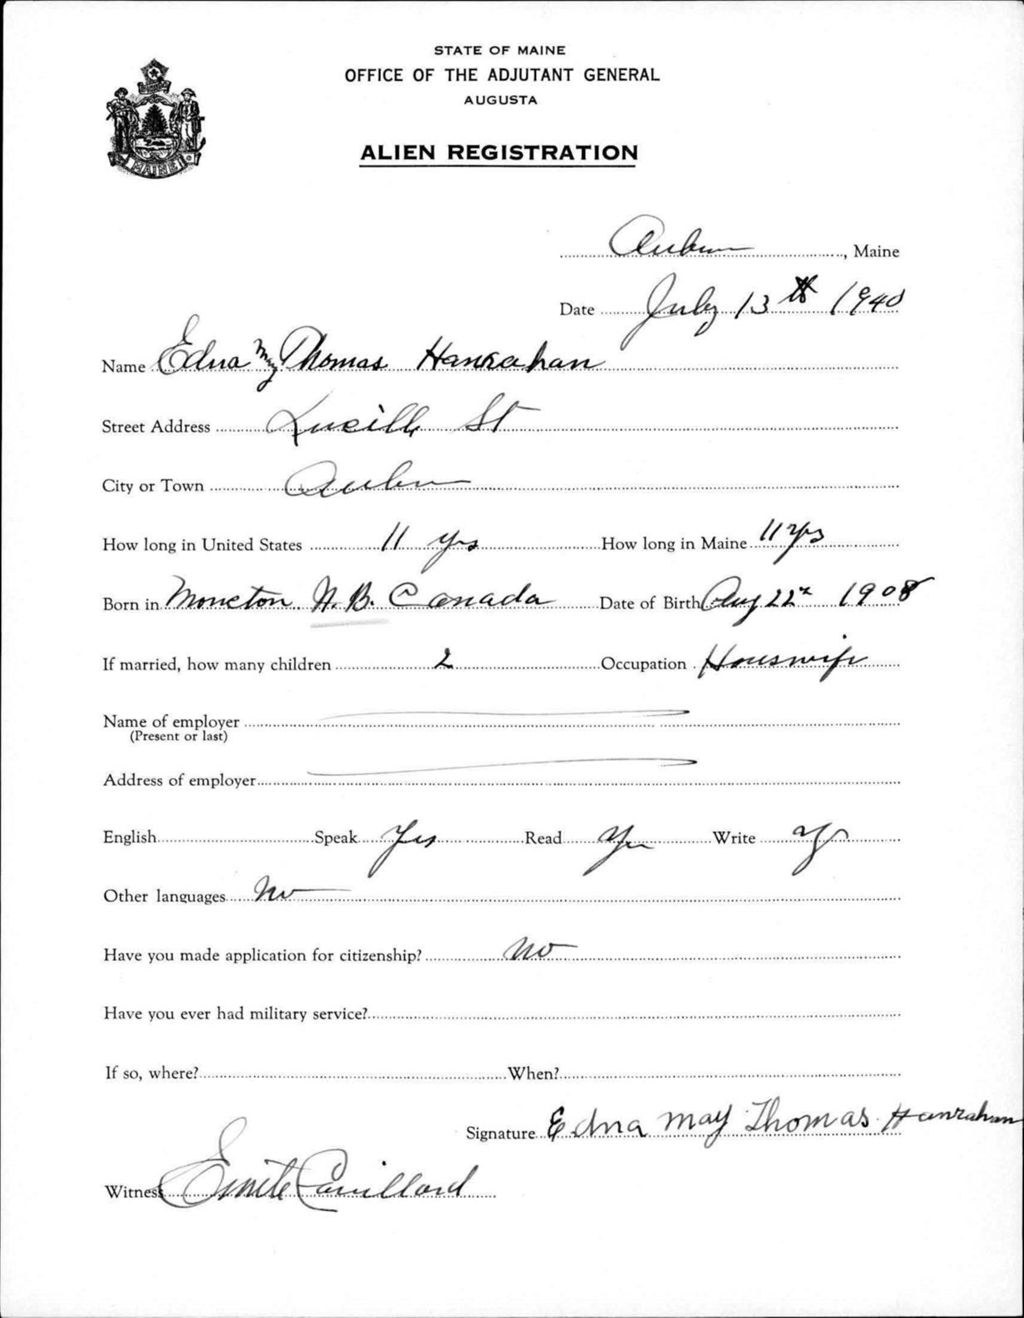 STATE OF MAINE
OFFICE OF THE ADJUTANT GENERAL
AUGUSTA
ALIEN REGISTRATION
MAINE
Auburn, Maine
Date July 13th 1940
Name Edna May Thomas Hanrahan
Street Address Lucille St
City or Town Auburn
How long in United States 11 yrs How long in Maine 11 Yrs
Born in Moncton N. B. Canada Date of Birth Aug 22 1908
If married, how many children 2 Occupation Houswife
Name of employer
(Present or last)
Address of employer
English Speak Yes Read Yes Write Yes
Other languages No
Have you made application for citizenship? No
Have you ever had military service?
If so, where? When?
Signature Edna May Thomas Hanrahan
Witness Emile